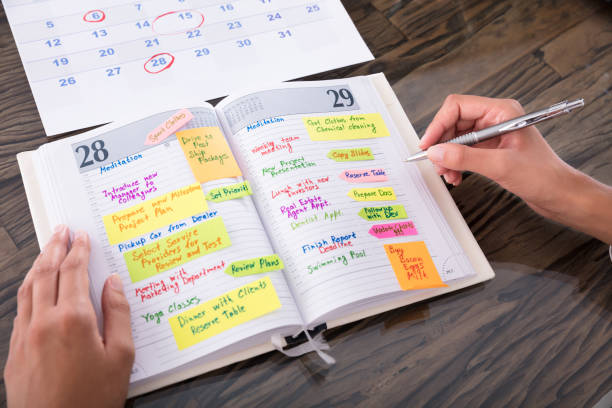 6
15
5
12
13
14
15
16
17
18
19
20
21
22
23
24
25
26
27
28
29
30
31
28
Meditation
Sport Clothes
Drive to
Post
Ship
Packages
Introduce New
Manager to
Colleagues
Set Priorities
Prepare New Milestone
Project Plan
Pickup Car From Dealer
Select Service
Providers for
Review and Test
Review Plans
Meeting with
Marketing Department
Yoga Classes
Dinner with Clients
Reserve Table
29
Meditation
Get Clothes from
Chemical Cleaning
Weekly team
meeting
Copy Slides
New Project
Presentation
Reserve Table
Lunch with New
Investors
Prepare Docs
Real Estate
Agent Appt.
Follow up with
Dev
Dentist Appt.
Finish Report
Deadline
Swimming Pool
Buy
Bacon
Eggs
Milk